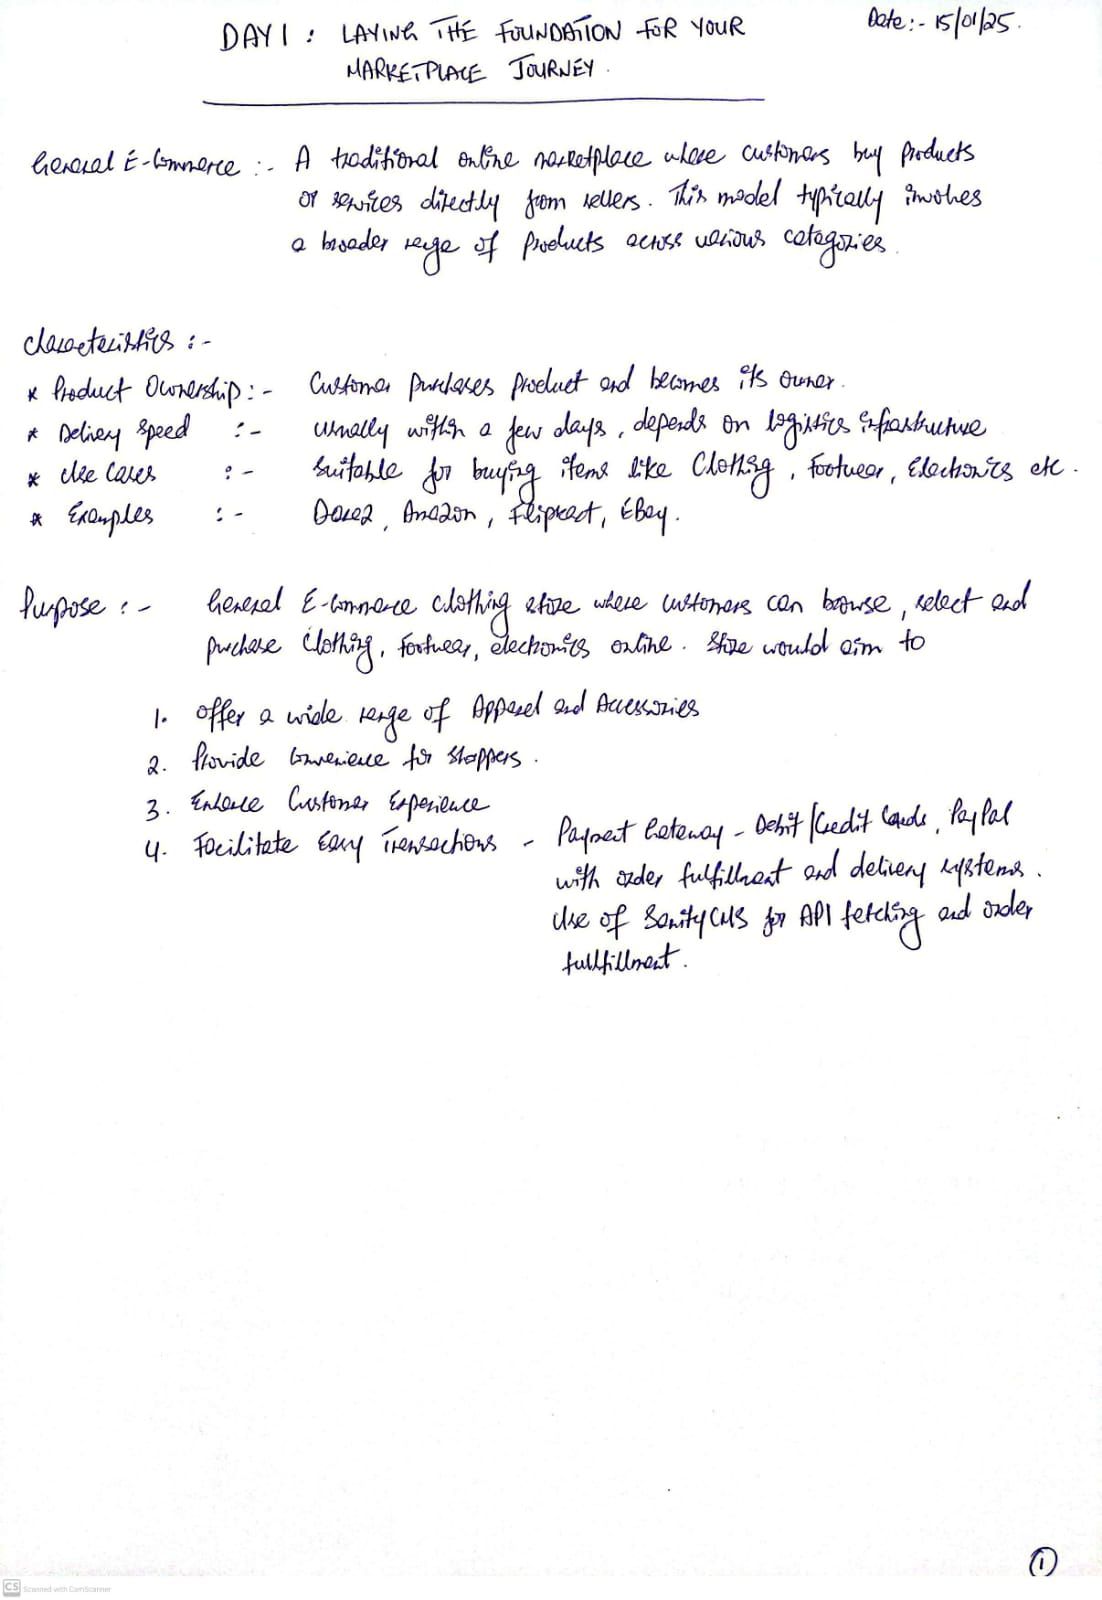 Date:- 15/01/25.
DAY 1 : LAYING THE FOUNDATION FOR YOUR
MARKETPLACE JOURNEY.
General E-Commerce :- A traditional online marketplace where customers buy products
or services directly from sellers. This model typically involves
a broader range of products across various categories.
Characteristics :-
* Product Ownership :- Customer purchases product and becomes its owner.
* Delivery Speed :- usually within a few days, depends on logistics infrastructure
* Use Cases :- Suitable for buying items like Clothing, Footwear, Electronics etc.
* Examples :- Daraz, Amazon, Flipkart, EBay.
Purpose :- General E-Commerce clothing store where customers can browse, select and
purchase Clothing, footwear, electronics online. Store would aim to
1. Offer a wide range of Apparel and Accessories
2. Provide Convenience for Shoppers.
3. Enhance Customer Experience
4. Facilitate Easy Transactions - Payment Gateway - Debit/Credit Cards, PayPal
with order fulfillment and delivery systems.
Use of Sanity CMS for API fetching and order
fullfillment.
1
CS Scanned with CamScanner